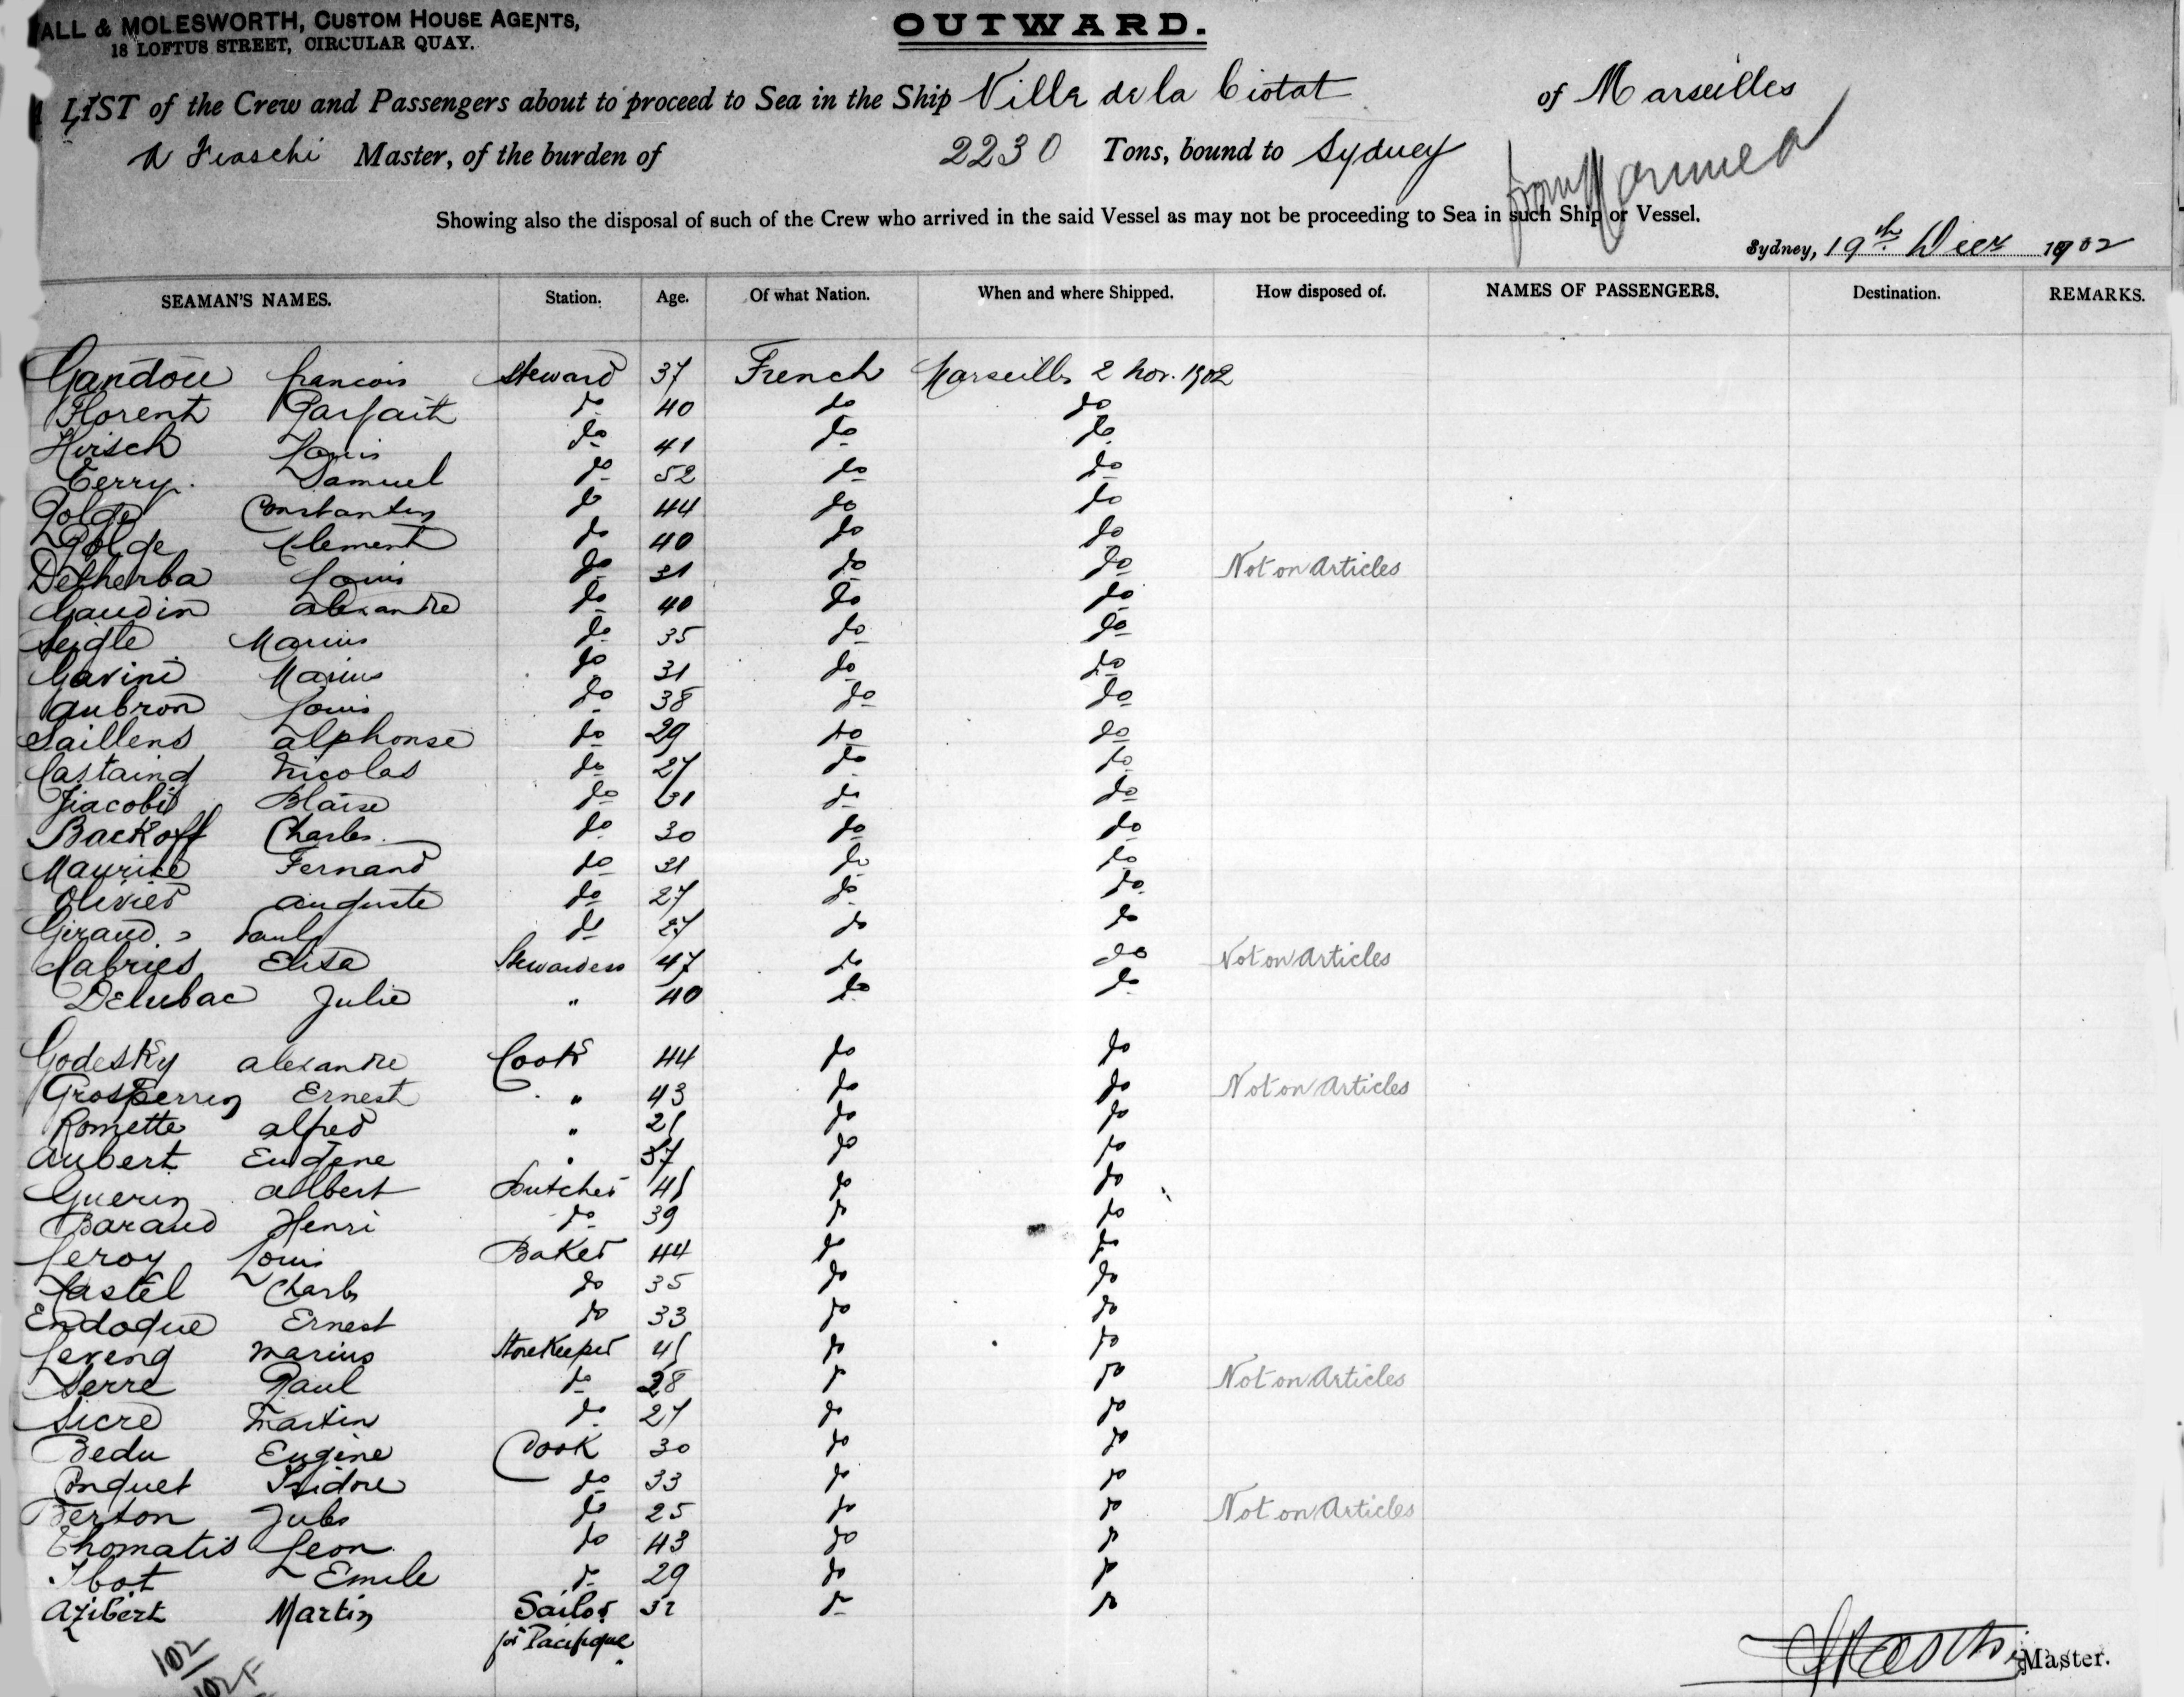 ALL & MOLESWORTH, CUSTOM HOUSE AGENTS,
18 LOFTUS STREET, CIRCULAR QUAY.
OUTWARD.
LIST of the Crew and Passengers about to proceed to Sea in the Ship Ville de la Ciotat of Marseilles
A Fiaschi Master, of the burden of 2230 Tons, bound to Sydney from Noumea
Showing also the disposal of such of the Crew who arrived in the said Vessel as may not be proceeding to Sea in such Ship or Vessel.
Sydney, 19th Decr 1902
SEAMAN'S NAMES. Station. Age. Of what Nation. When and where Shipped. How disposed of. NAMES OF PASSENGERS. Destination. REMARKS.
Gandou francois Steward 37 French Marseilles 2 Nov. 1902
Florent Parfait do 40 do do
Hirsch Louis do 41 do do
Terry Samuel do 52 do do
Polge Constantin do 44 do do
Polge Clement do 40 do do
Delherba Louis do 31 do do Not on Articles
Gaudin alexandre do 40 do do
Seigle Marius do 35 do do
Gavini Marius do 31 do do
aubron Louis do 38 do do
Saillens alphonse do 29 do do
Castaing Nicolas do 27 do do
Jiacobi Blaise do 31 do do
Backoff Charles do 30 do do
Maurice Fernand do 31 do do
Olivier auguste do 27 do do
Giraud Paul do 27 do do
Cabries Elisa Stewardess 47 do do Not on Articles
Delubac Julie " 40 do do
Godesky alexandre Cook 44 do do
GrosPerrin Ernest " 43 do do Not on Articles
Romette alfred " 21 do do
Aubert Eugene " 37 do do
Guerin albert Butcher 41 do do
Baraud Henri do 39 do do
Leroy Louis Baker 44 do do
Castel Charles do 35 do do
Endoque Ernest do 33 do do
Leveng Marius StoreKeeper 41 do do
Serre Paul do 28 do do Not on Articles
Sicre Martin do 27 do do
Bedu Eugène Cook 30 do do
Conquet Isidore do 33 do do
Berton Jules do 25 do do Not on Articles
Thomatis Leon do 43 do do
Ibot Emile do 29 do do
Azibert Martin Sailor 32 do do
for Pacifique
102
Master.